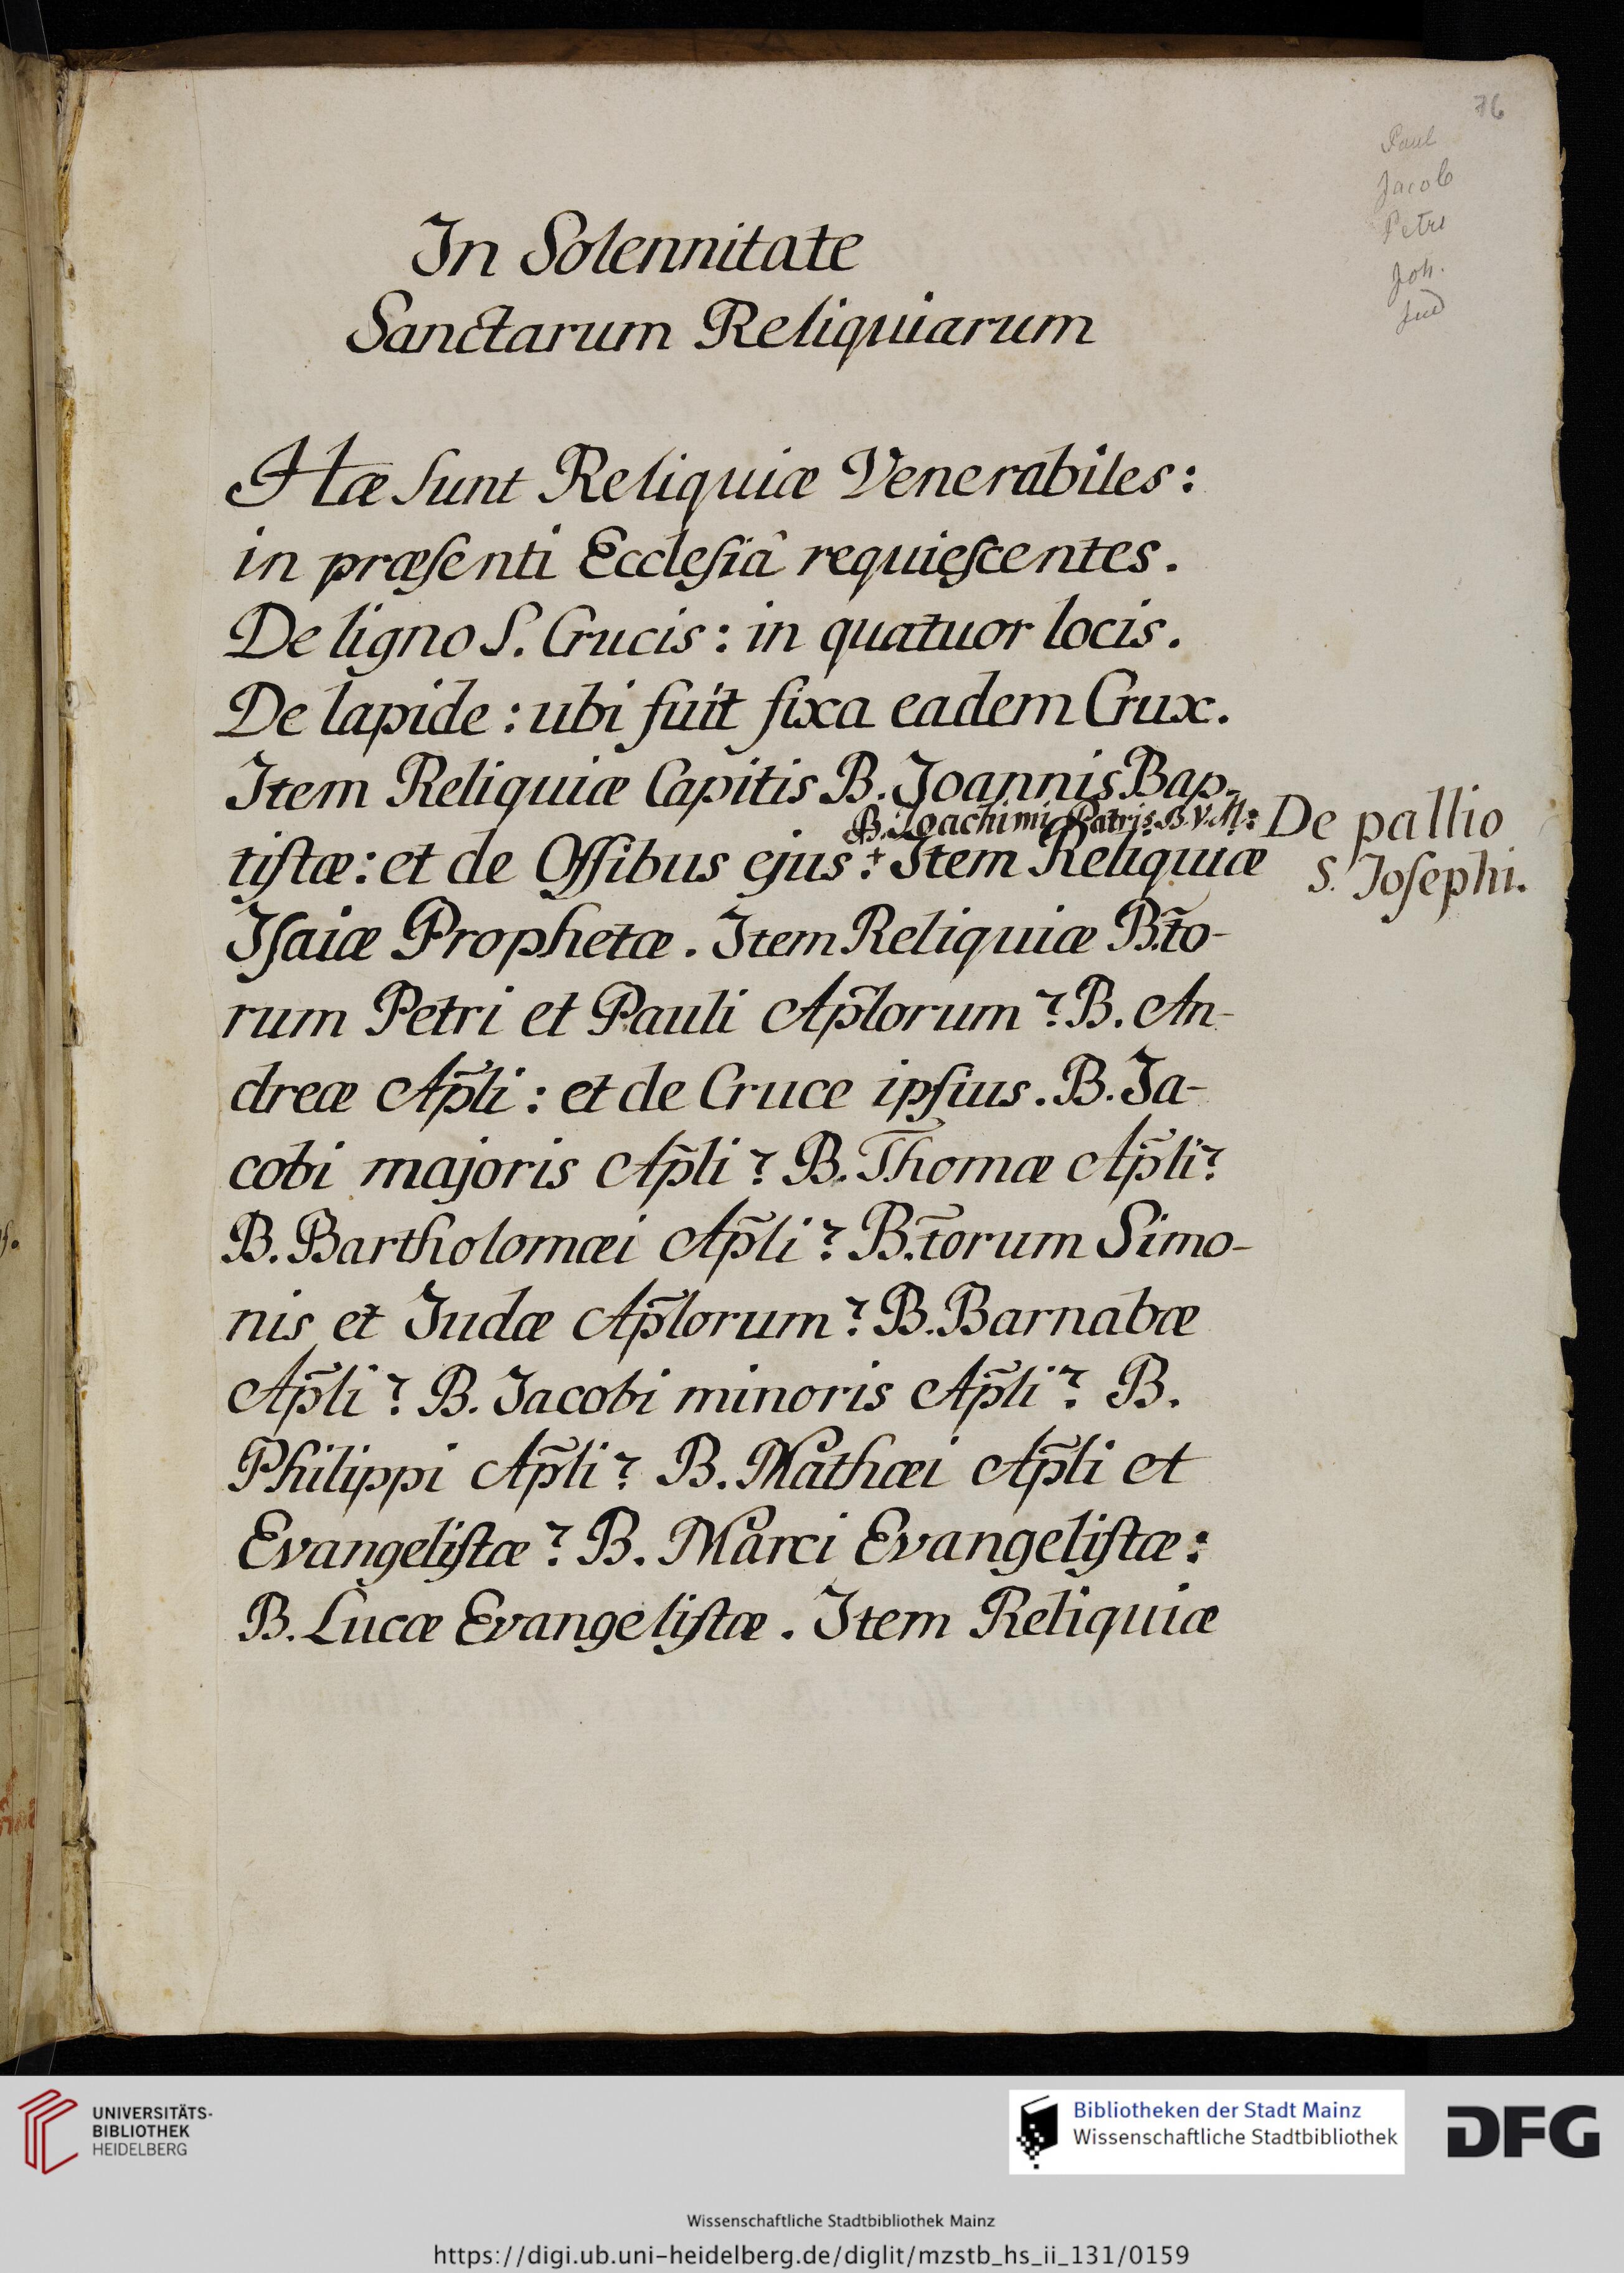 76
Paul
Jacob
Petrs
Joh.
Jud
In Solennitate
Sanctarum Reliquiarum
Hæ sunt Reliquiæ Venerabiles:
in præſenti Eccleſiâ requieſcentes.
De ligno S. Crucis: in quatuor locis.
De lapide: ubi fuit fixa eadem Crux.
Item Reliquiæ Capitis B. Joannis Bap-
B. Joachimi Patris B.V.M: De pallio
S. Joſephi.
tiſtæ: et de Oſſibus ejus: + Item Reliquiæ
Iſaiæ Prophetæ. Item Reliquiæ B.t̃o-
rum Petri et Pauli Ap̃lorum? B. An-
dreæ Ap̃li: et de Cruce ipſius. B. Ja-
cobi majoris Ap̃li? B. Thomæ Ap̃li?
B. Bartholomæi Ap̃li? B.t̃orum Simo-
nis et Judæ Ap̃lorum? B. Barnabæ
Ap̃li? B. Jacobi minoris Ap̃li? B.
Philippi Ap̃li? B. Mathæi Ap̃li et
Evangeliſtæ? B. Marci Evangeliſtæ:
B. Lucæ Evangeliſtæ. Item Reliquiæ
UNIVERSITÄTS-
BIBLIOTHEK
HEIDELBERG
Bibliotheken der Stadt Mainz
Wissenschaftliche Stadtbibliothek
DFG
Wissenschaftliche Stadtbibliothek Mainz
https://digi.ub.uni-heidelberg.de/diglit/mzstb_hs_ii_131/0159